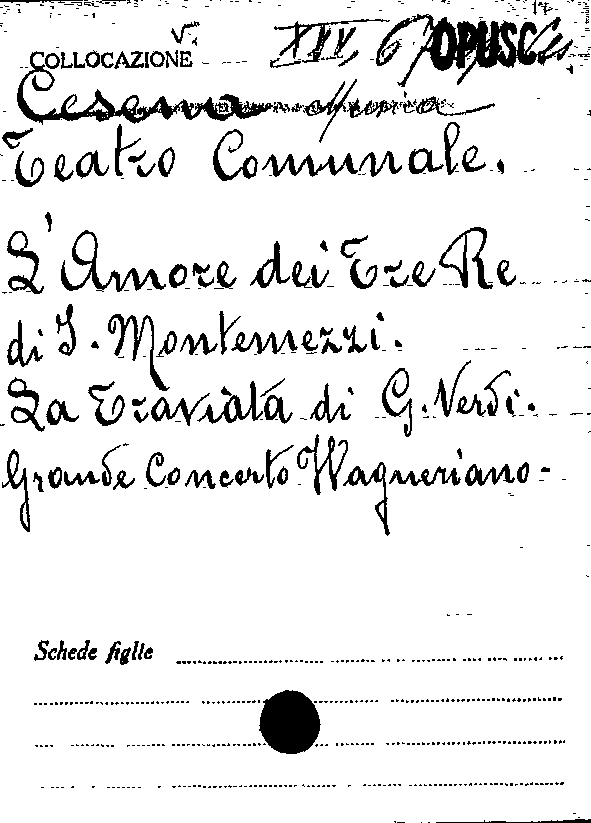 17
V.
COLLOCAZIONE XIV, 6 OPUSC.
Cesena Musica
Teatro Comunale.
L'Amore dei Tre Re
di I. Montemezzi.
La Traviata di G. Verdi.
Grande Concerto Wagneriano-
Schede figlie